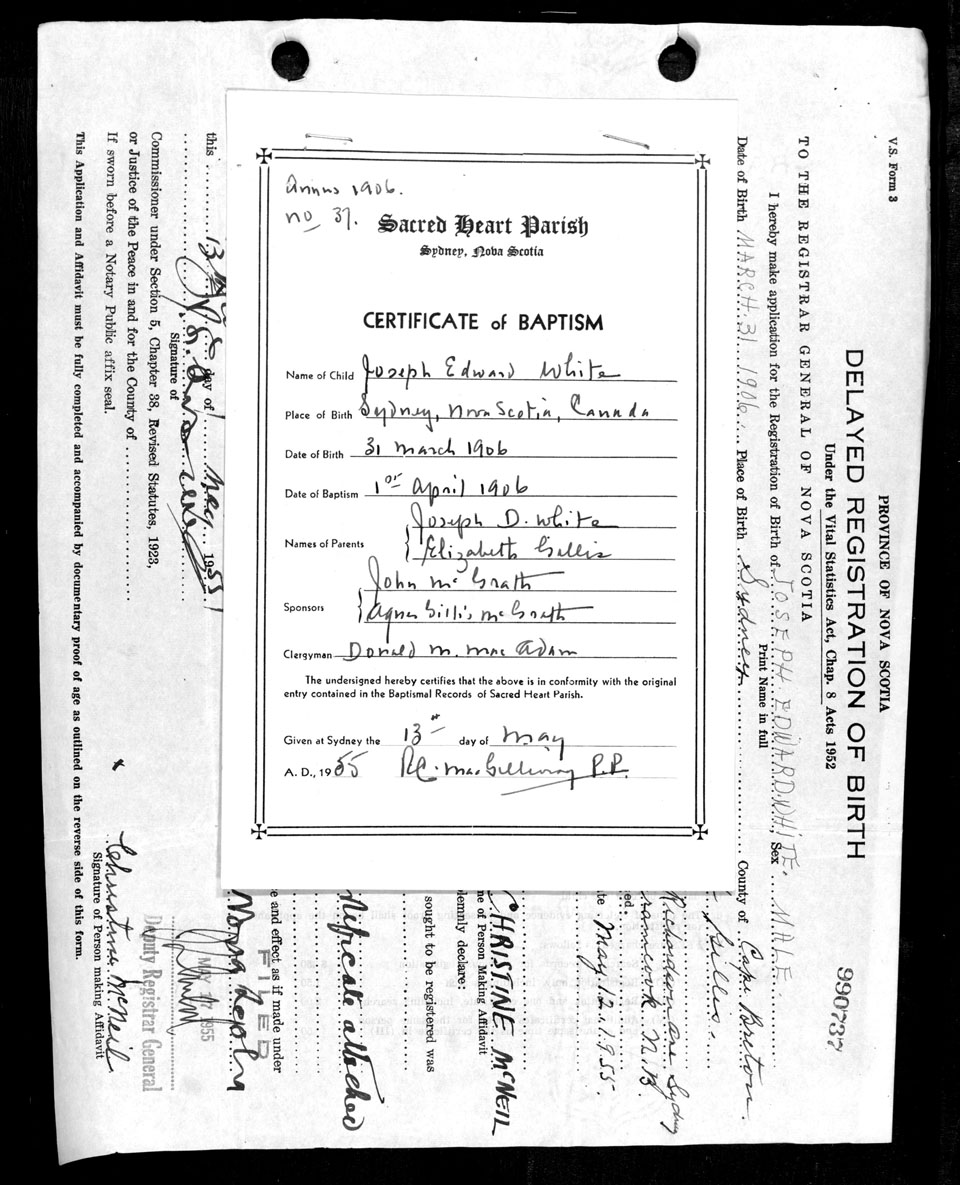 Annus 1906.
no 37.
Sacred Heart Parish
Sydney, Nova Scotia
CERTIFICATE of BAPTISM
Name of Child Joseph Edward White
Place of Birth Sydney, Nova Scotia, Canada
Date of Birth 31 March 1906
Date of Baptism 1st April 1906
Names of Parents Joseph D. White
Elizabeth Gillis
Sponsors John McGrath
Agnes Gillis McGrath
Clergyman Donald M. MacAdam
The undersigned hereby certifies that the above is in conformity with the original
entry contained in the Baptismal Records of Sacred Heart Parish.
Given at Sydney the 13th day of May
A. D., 1955 R.C. MacGillivray P.P.
V.S. Form 3
PROVINCE OF NOVA SCOTIA
990737
DELAYED REGISTRATION OF BIRTH
Under the Vital Statistics Act, Chap. 8 Acts 1952
TO THE REGISTRAR GENERAL OF NOVA SCOTIA
I hereby make application for the Registration of Birth of JOSEPH EDWARD WHITE, Sex MALE
Print Name in full
Date of Birth MARCH 31 1906 Place of Birth Sydney County of Cape Breton.
Gillis
Sydney
N.B.
May 12, 1955.
CHRISTINE McNEIL
Name of Person Making Affidavit
solemnly declare:
sought to be registered was
certificate attached
e and effect as if made under
FILED
this 13 day of May 1955
Signature of
MAY 1955
Deputy Registrar General
Commissioner under Section 5, Chapter 38, Revised Statutes, 1923,
or Justice of the Peace in and for the County of
If sworn before a Notary Public affix seal.
x Christine McNeil
Signature of Person making Affidavit
This Application and Affidavit must be fully completed and accompanied by documentary proof of age as outlined on the reverse side of this form.